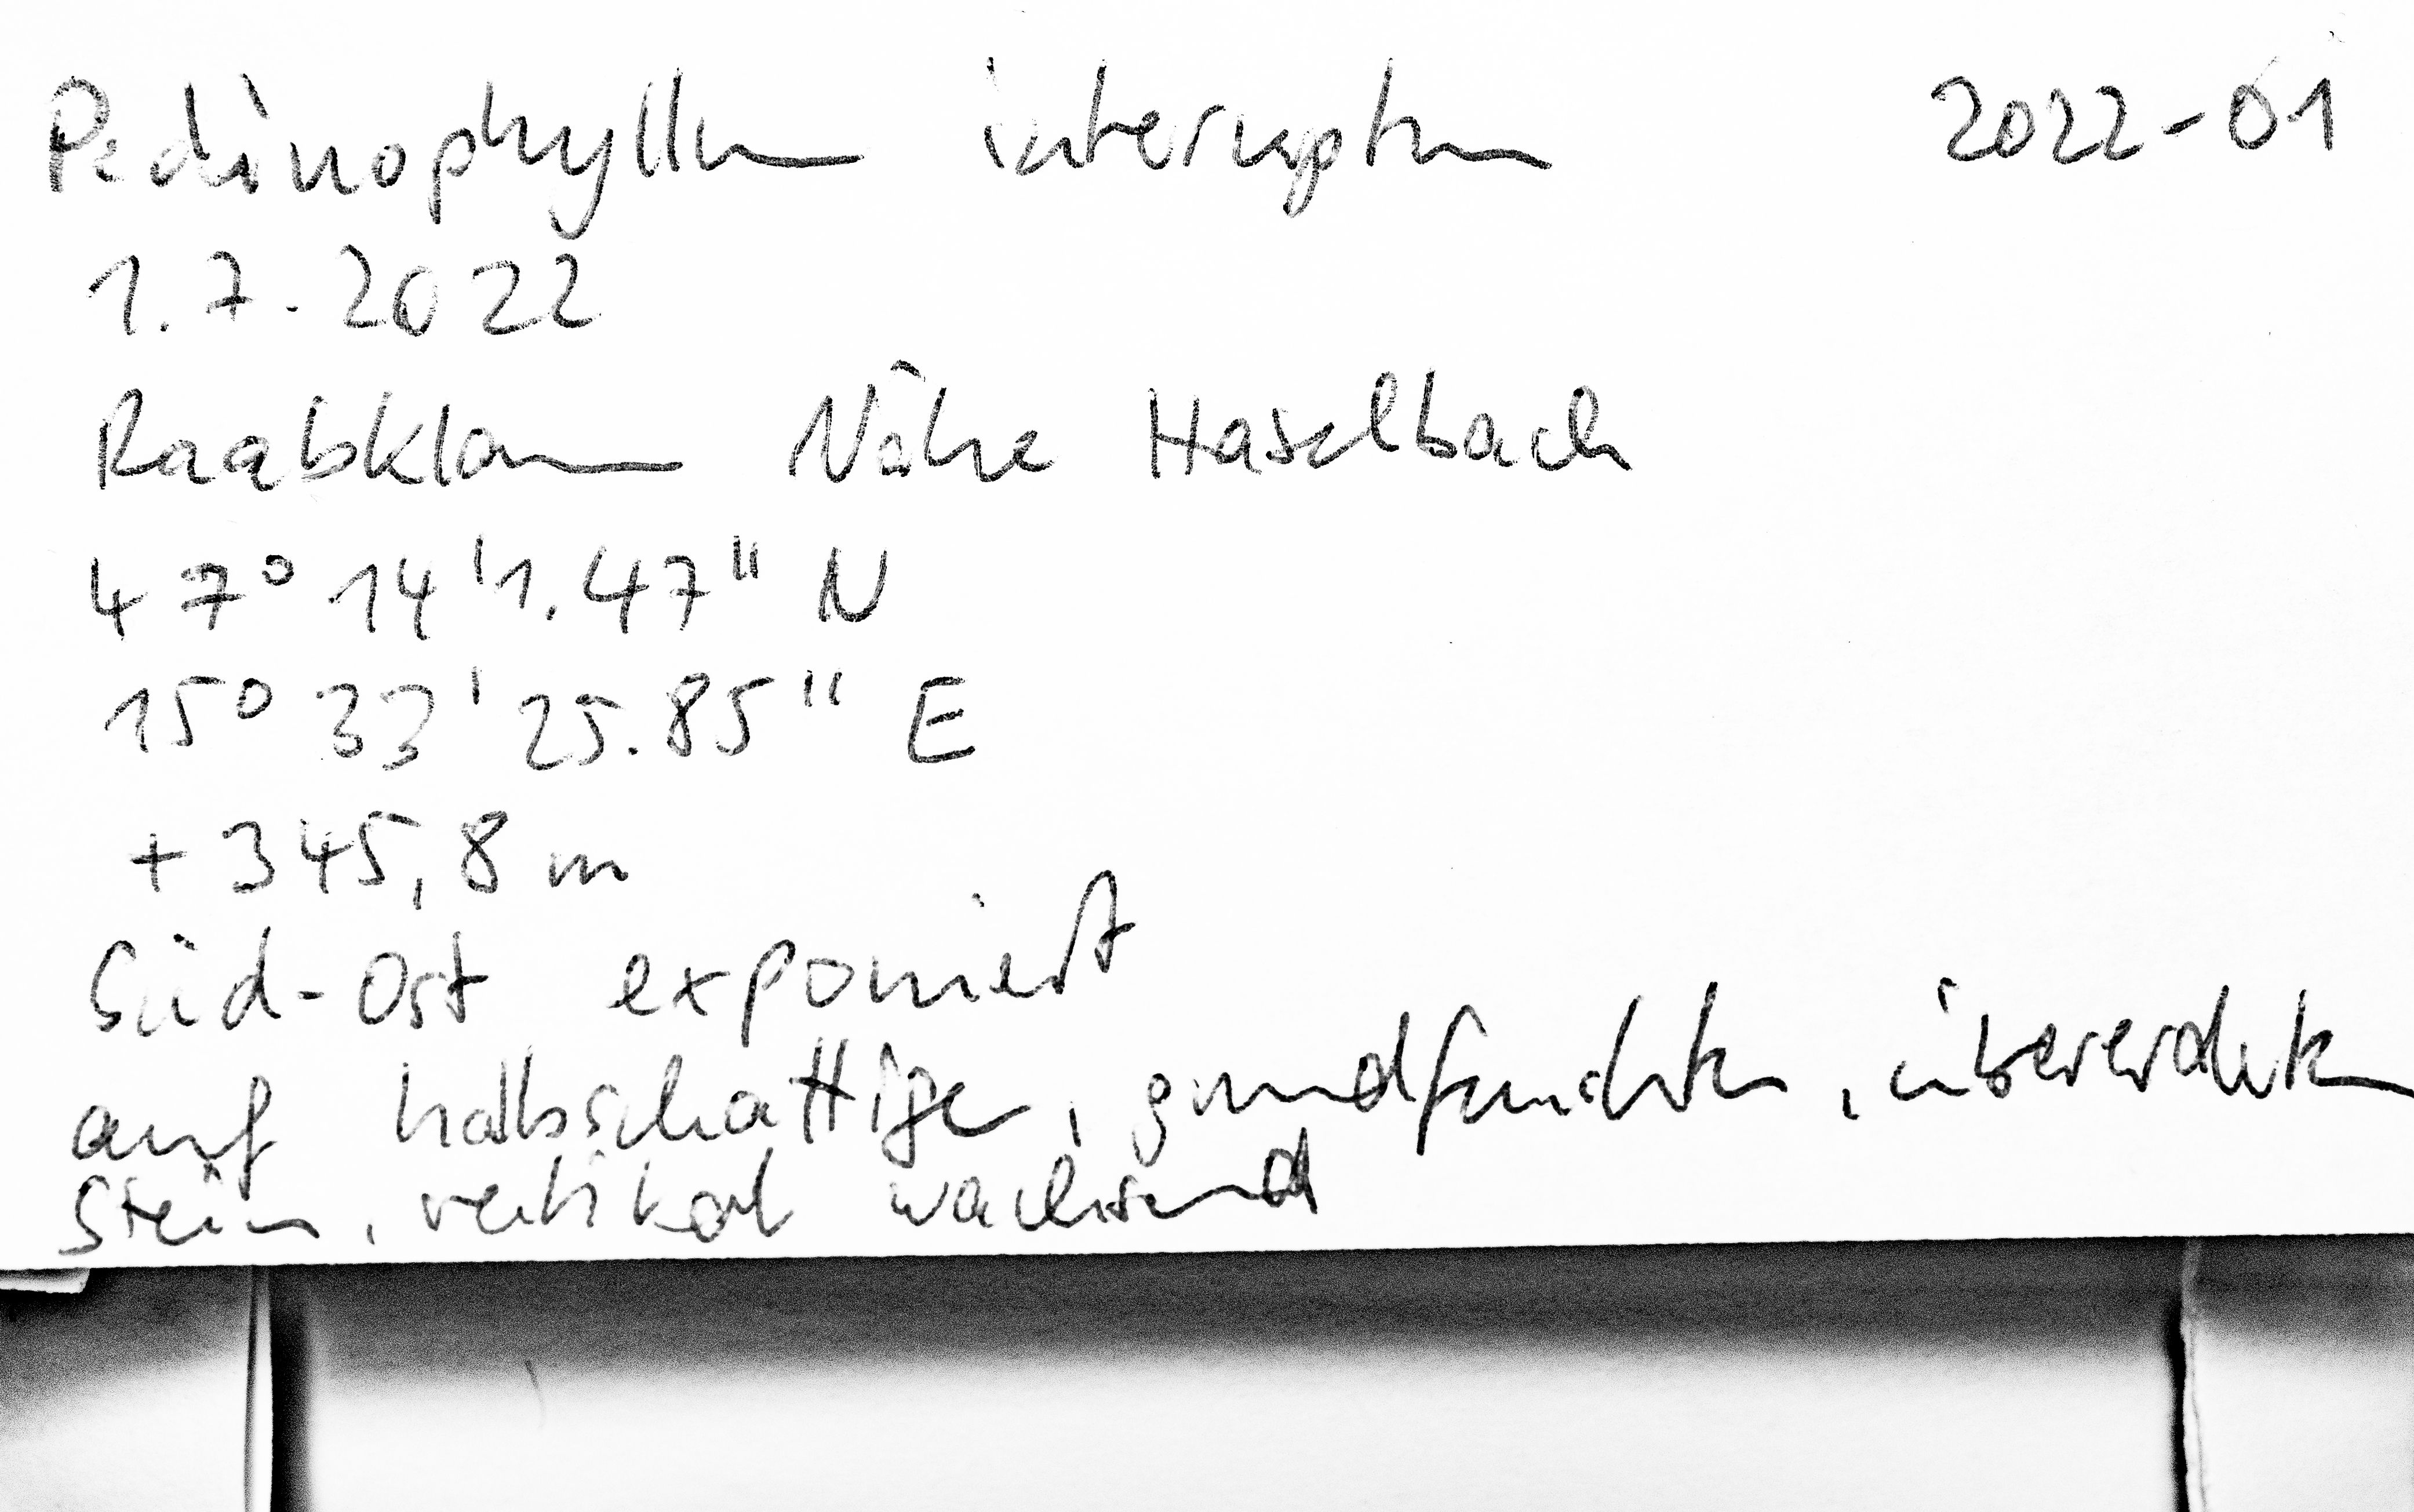 Pedinophyllum interruptum 2022-01
1.7.2022
Raabklamm Nähe Haselbach
47° 14' 1.47" N
15° 33' 25.85" E
+ 345,8 m
Süd-Ost exponiert
auf halbschattigem, grundfeuchtem, übererdetem
Stein, vertikal wachsend